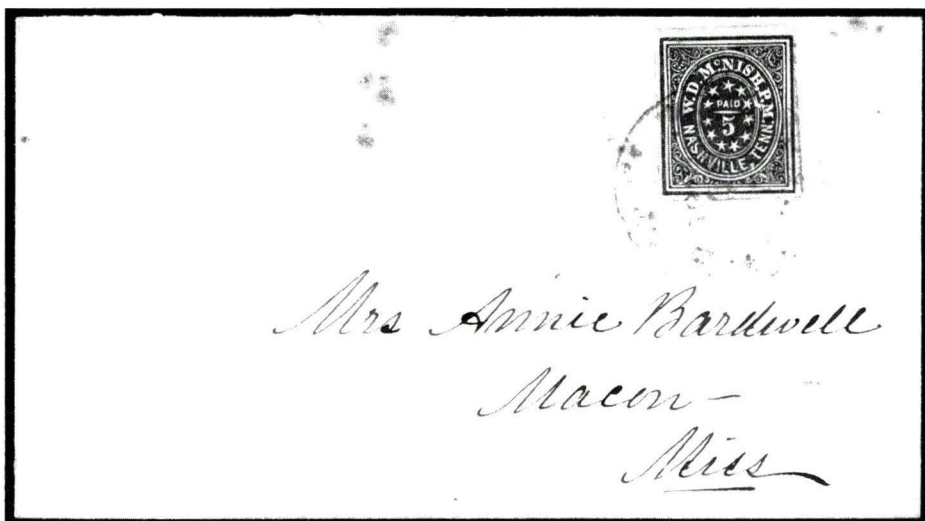 W.D. McNISH, P.M.
PAID
5
NASHVILLE, TENN.
Mrs Annie Bardwell
Macon -
Miss